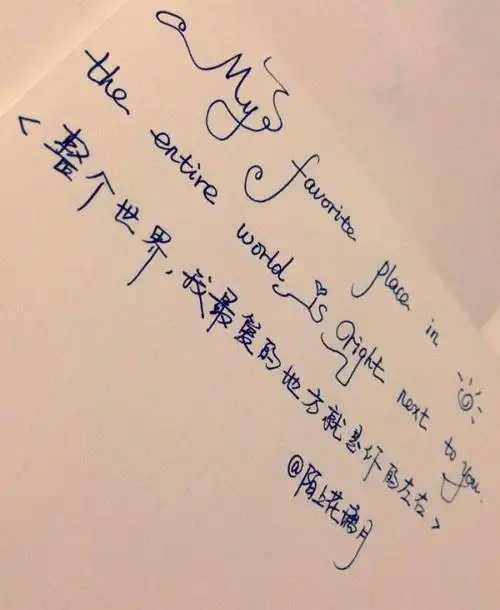 My favorite place in
the entire world is right next to you.
<整个世界,我最爱的地方就是你的左右>
@陌上花满月